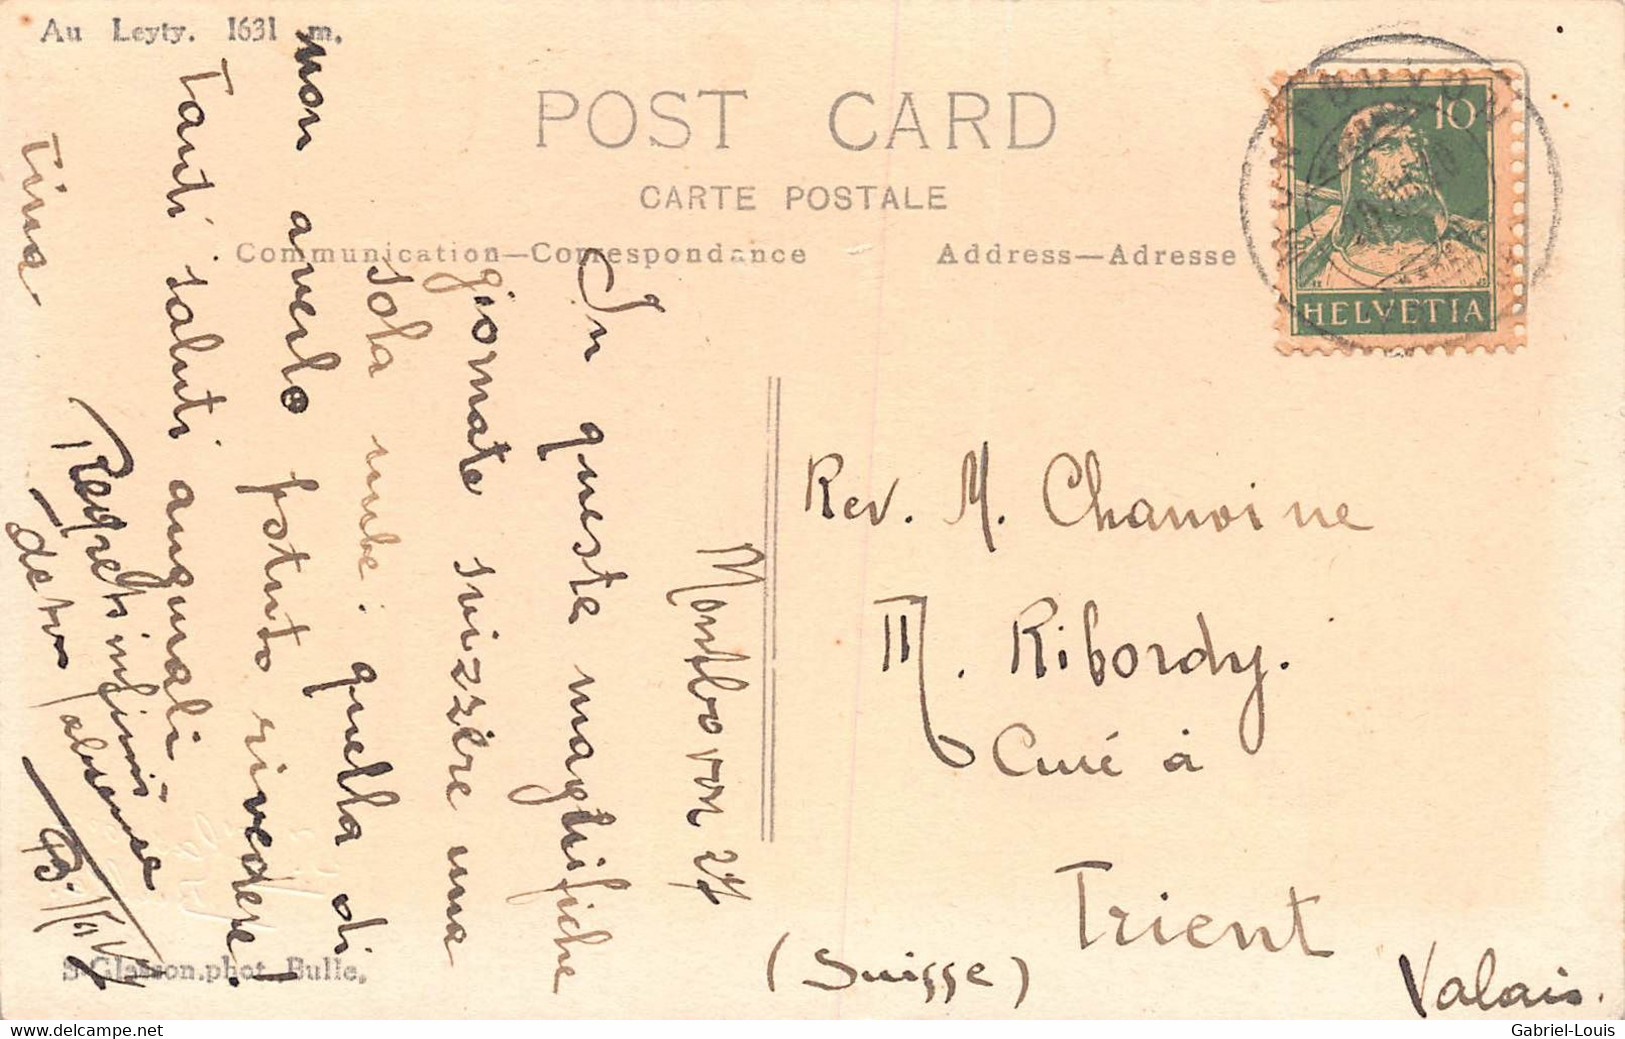 Au Leyty. 1631 m.
POST CARD
CARTE POSTALE
Communication—Correspondance
Address—Adresse
10
HELVETIA
Montbovon 27
In queste magnifiche
giornate svizzere una
sola nube: quella di
non averlo potuto rivedere!
Tanti saluti augurali
Tina
Regrets infinis
de votre absence
Rev. M. Chanoine
M. Ribordy.
Curé à
Trient
(Suisse)
Valais.
S. Glasson. phot. Bulle.
Gabriel-Louis